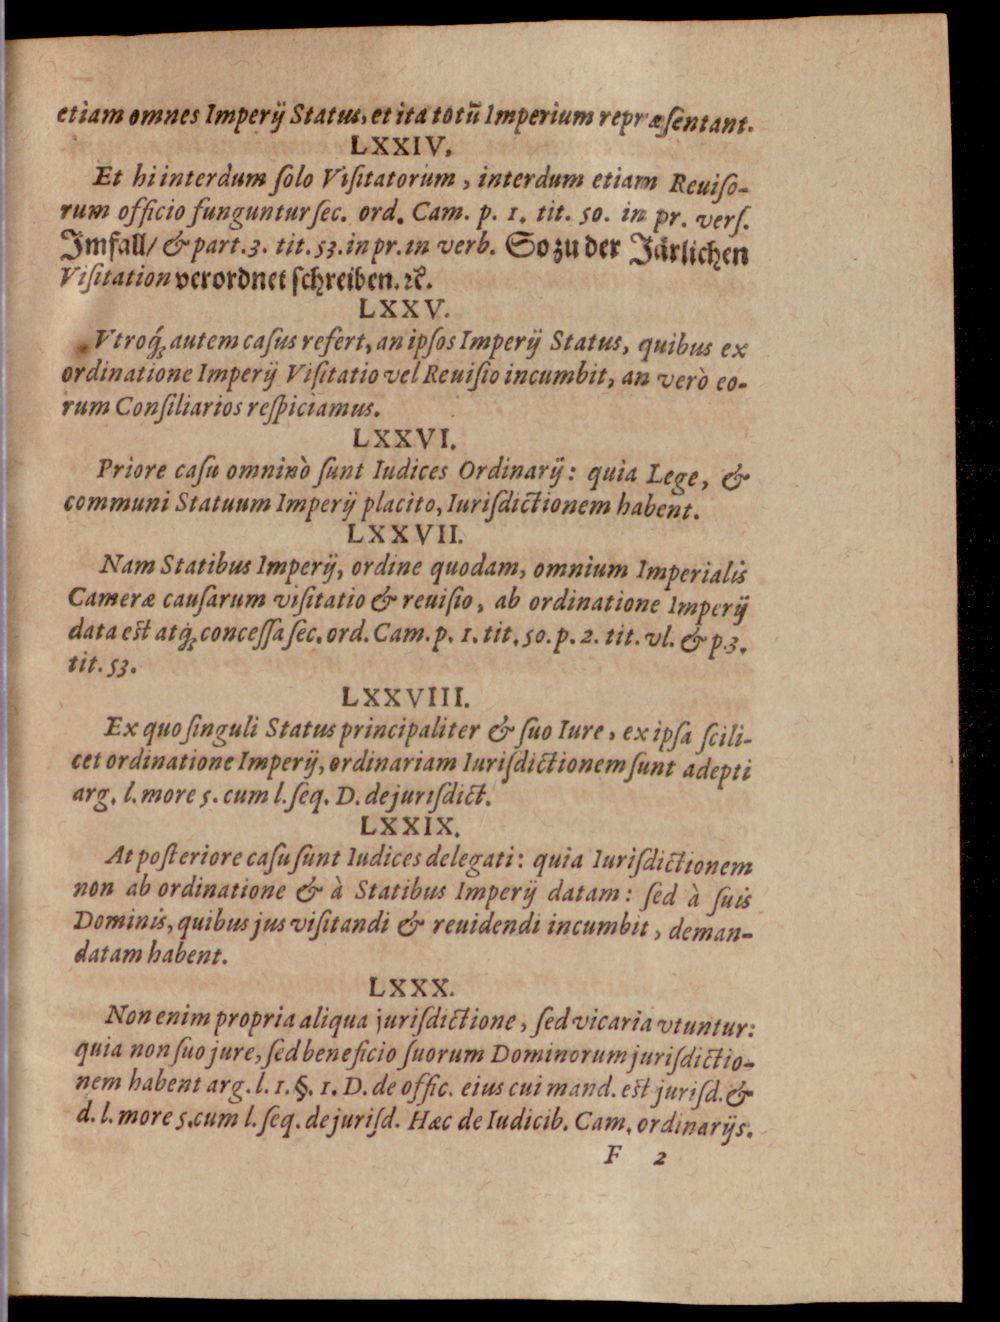 etiam omnes Imperij Status, et ita totũ Imperium repræſentant.
LXXIV.
Et hi interdum ſolo Viſitatorum, interdum etiam Reuiſo-
rum officio funguntur ſec. ord. Cam. p. 1. tit. 50. in pr. verſ.
Jmfall/ & part. 3. tit. 53. in pr. in verb. So zu der Järlichen
Viſitation verordnet ſchreiben. ꝛc.
LXXV.
Vtroq́; autem caſus refert, an ipſos Imperij Status, quibus ex
ordinatione Imperij Viſitatio vel Reuiſio incumbit, an verò eo-
rum Conſiliarios reſpiciamus.
LXXVI.
Priore caſu omninò ſunt Iudices Ordinarij: quia Lege, &
communi Statuum Imperij placito, Iurisdictionem habent.
LXXVII.
Nam Statibus Imperij, ordine quodam, omnium Imperialis
Cameræ cauſarum viſitatio & reuiſio, ab ordinatione Imperij
data eſt atq́; conceſſa ſec. ord. Cam. p. 1. tit. 50. p. 2. tit. vl. & p 3.
tit. 53.
LXXVIII.
Ex quo ſinguli Status principaliter & ſuo Iure, ex ipſa ſcili-
cet ordinatione Imperij, ordinariam Iuriſdictionem ſunt adepti
arg. l. more 5. cum l. ſeq. D. de juriſdict.
LXXIX.
At poſteriore caſu ſunt Iudices delegati: quia Iuriſdictionem
non ab ordinatione & à Statibus Imperij datam: ſed à ſuis
Dominis, quibus jus viſitandi & reuidendi incumbit, deman-
datam habent.
LXXX.
Non enim propria aliqua juriſdictione, ſed vicaria vtuntur:
quia non ſuo jure, ſed beneficio ſuorum Dominorum juriſdictio-
nem habent arg. l. 1. §. 1. D. de offic. eius cui mand. eſt juriſd. &
d. l. more 5. cum l. ſeq. de juriſd. Hæc de Iudicib. Cam. ordinarijs.
F 2